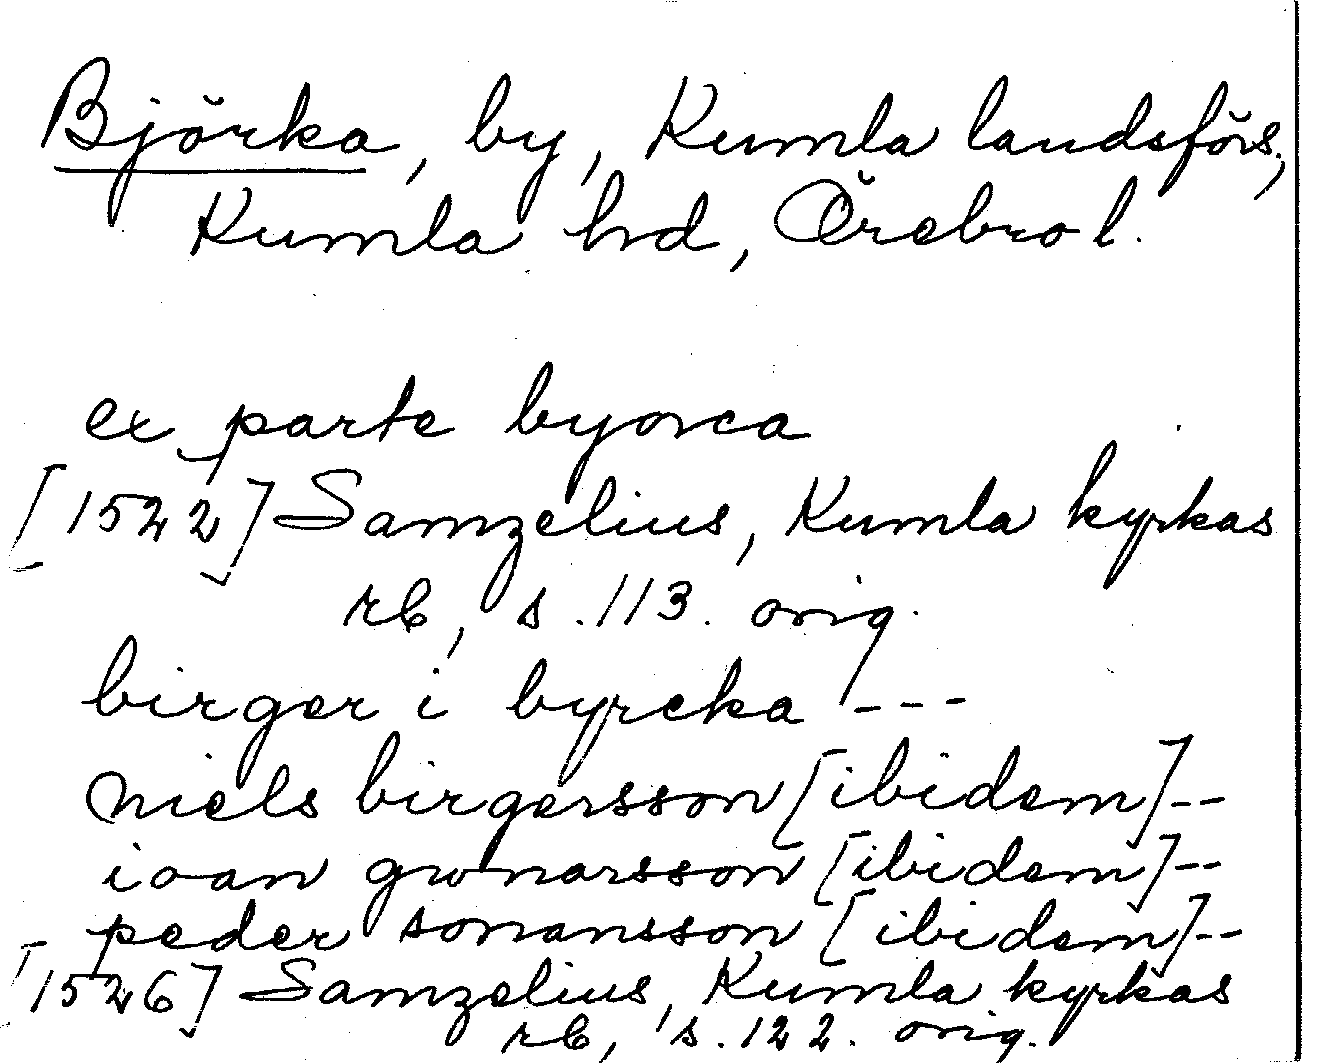 Björka, by, Kumla landsförs,
Kumla hd, Örebro l.
ex parte byorca
[1522] Samzelius, Kumla kyrkas
rb, s. 113. orig.
birger i byrcka ---
niels birgersson [ibidem]--
ioan gwnarsson [ibidem]--
peder sonansson [ibidem]--
[1526] Samzelius, Kumla kyrkas
rb, s. 122. orig.